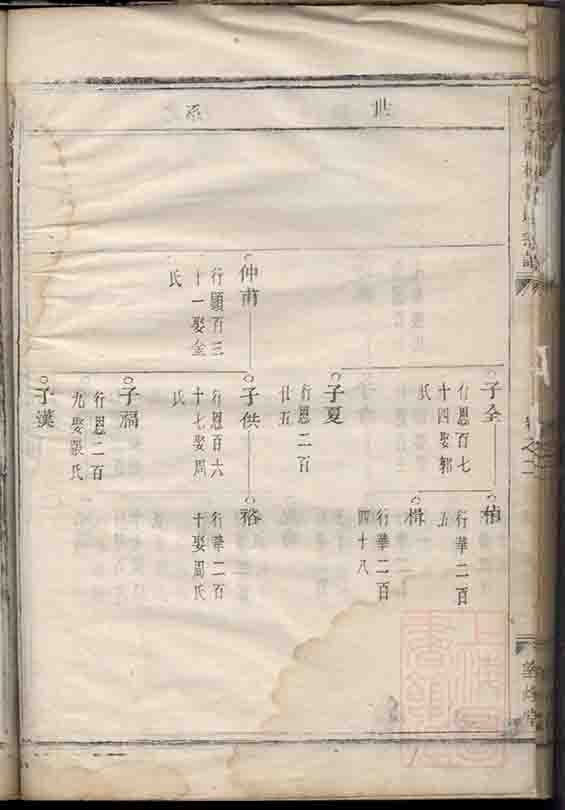 世系
子全
行恩百七
十四娶郭
氏
柏
行華二百
五
楫
行華二百
四十八
子夏
行恩二百
廿五
仲甫
行顯百三
十一娶金
氏
子供
行恩百六
十七娶周
氏
裕
行華二百
十娶周氏
子福
行恩二百
九娶張氏
子漢
卷之二
上海圖書館藏